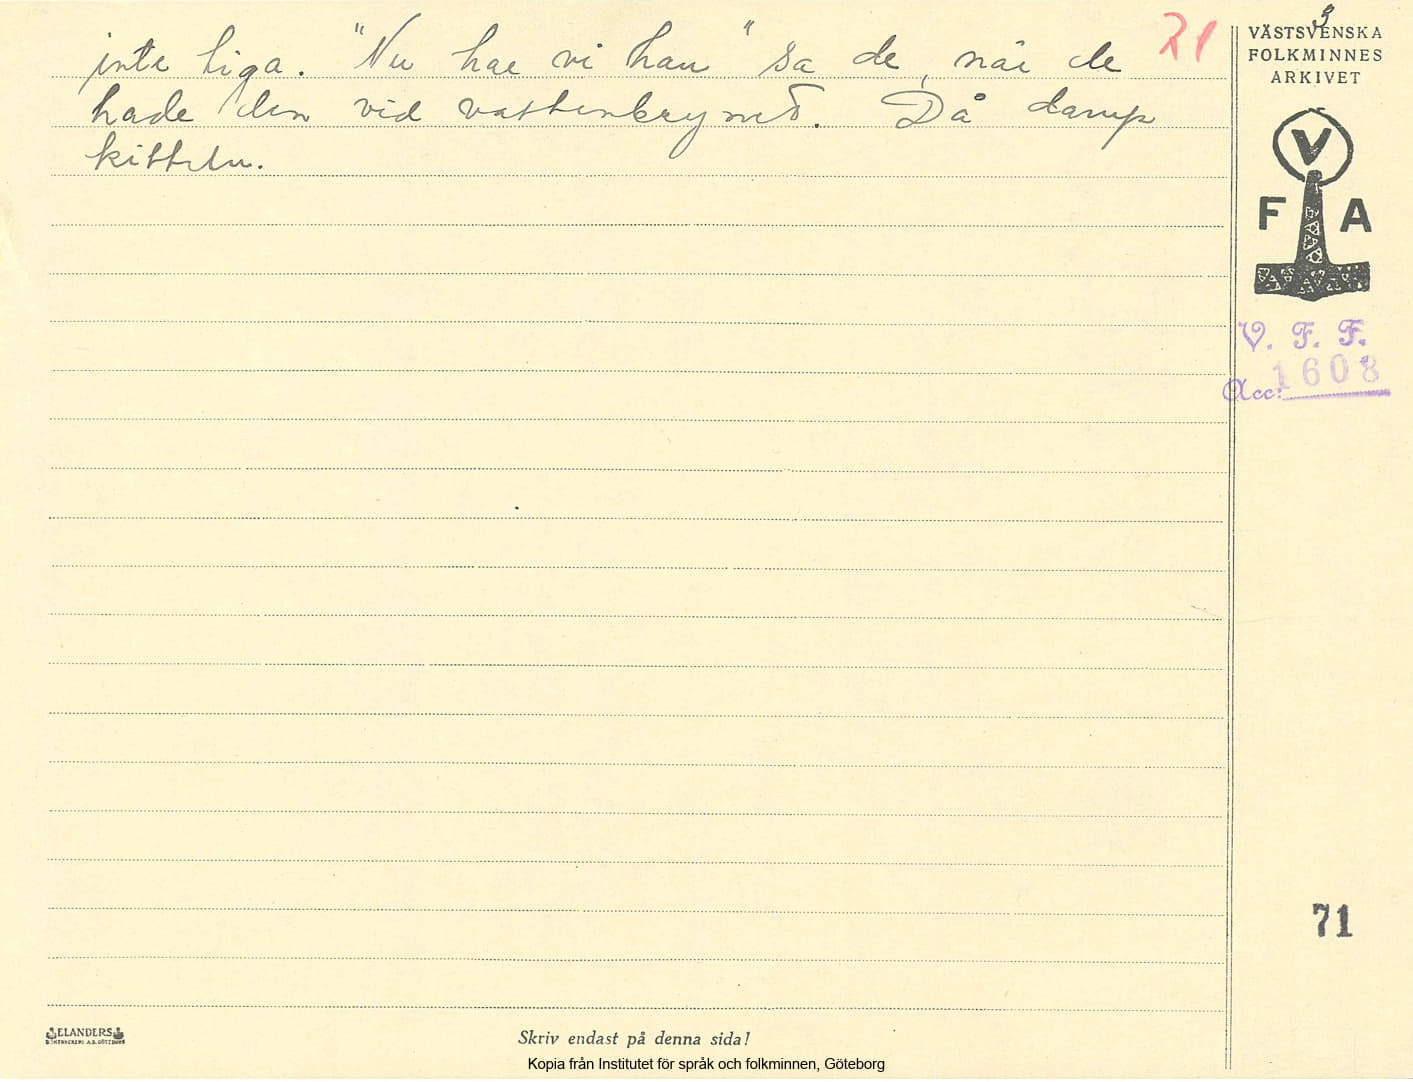 3
inte tiga. "Nu har vi han" sa de, när de
21
hade den vid vattenbrynet. Då damp
kitteln.
VÄSTSVENSKA
FOLKMINNES
ARKIVET
V
F A
V. F. F.
Acc: 1608
71
ELANDERS
BOKTRYCKERI A.B. GÖTEBORG
Skriv endast på denna sida!
Kopia från Institutet för språk och folkminnen, Göteborg